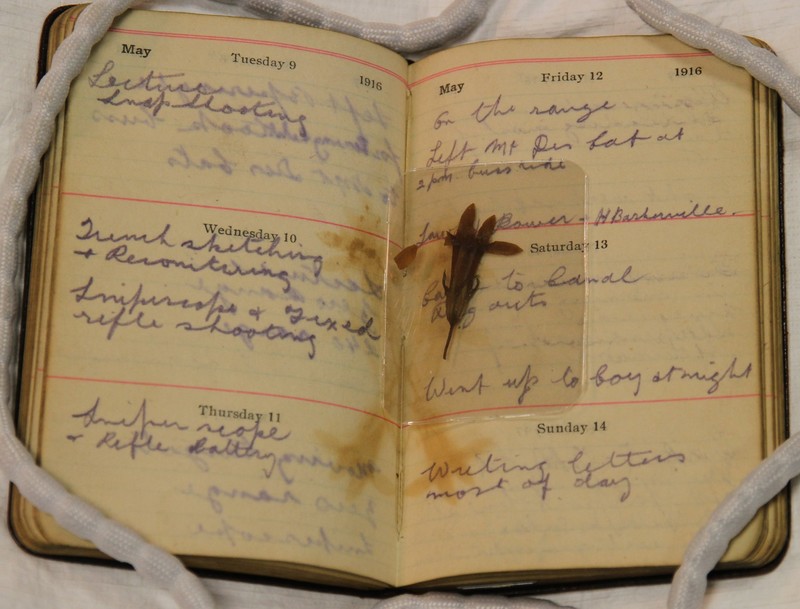 May Tuesday 9 1916
Lectures on
Snap Shooting
Wednesday 10
Trench sketching
+ Reconitering
Sniperscope & Fixed
rifle shooting
Thursday 11
Sniper scope
+ Rifle Battery
May Friday 12 1916
On the range
Left Mt Des Cat at
2 pm buss ride
Power - H Baskerville.
Saturday 13
to Canal
outs
Went up to Coy at night
Sunday 14
Writing letters
most of day